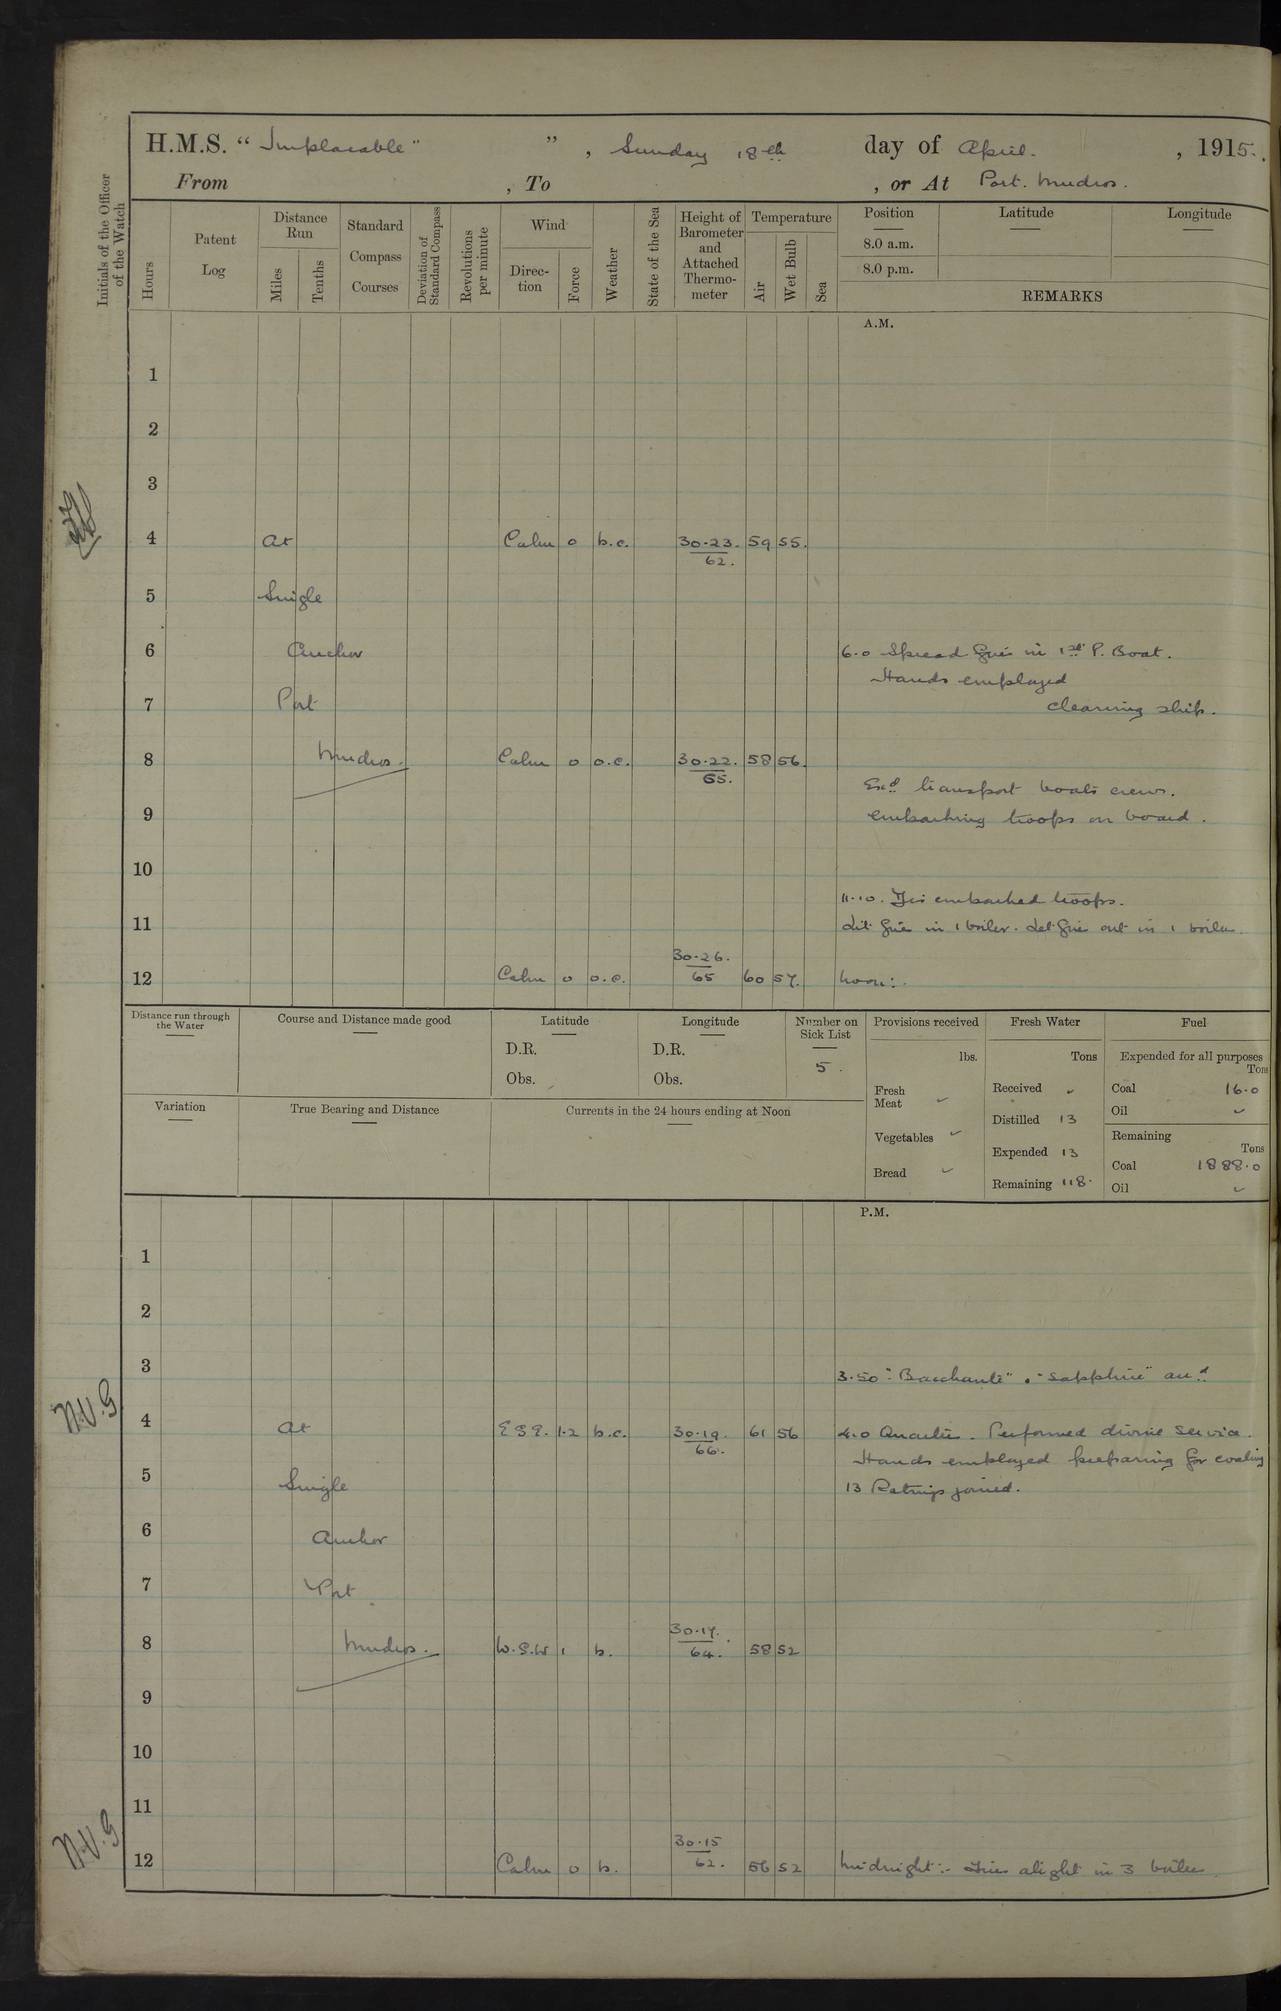 H.M.S. "Implacable" ", Sunday 18th day of April. , 1915.
From , To , or At Port. Mudros.
Initials of the Officer of the Watch
Hours
Patent Log
Distance Run
Miles
Tenths
Standard Compass Courses
Deviation of Standard Compass
Revolutions per minute
Wind
Direction
Force
Weather
State of the Sea
Height of Barometer and Attached Thermometer
Temperature
Air
Wet Bulb
Sea
Position
8.0 a.m.
8.0 p.m.
Latitude
Longitude
REMARKS
A.M.
1
2
3
4 At Calm 0 b.c. 30.23. 62. 59 55.
5 Single
6 Anchor 6.0 Spread fires in 1st P. Boat.
Hands employed
7 Port cleaning ship.
8 Mudros. Calm 0 o.c. 30.22. 65. 58 56.
Exd transport boats crews.
9 Embarking troops on board.
10
11.10. Dis embarked troops.
11 Lit fires in 1 boiler. Let fires out in 1 boiler.
12 Calm 0 o.c. 30.26. 65 60 57. Noon:-
Distance run through the Water
Course and Distance made good
Latitude
D.R.
Obs.
Longitude
D.R.
Obs.
Number on Sick List
5.
Provisions received
lbs.
Fresh Meat ✓
Vegetables ✓
Bread ✓
Fresh Water
Tons
Received ✓
Distilled 13
Expended 13
Remaining 118.
Fuel
Expended for all purposes
Tons
Coal 16.0
Oil ✓
Remaining
Tons
Coal 1888.0
Oil ✓
Variation
True Bearing and Distance
Currents in the 24 hours ending at Noon
P.M.
1
2
3
3.50 "Bacchante" . "Sapphire" ard
N.V.G
4 At E.S.E. 1.2 b.c. 30.19. 66. 61 56 4.0 Quarters. Performed divine service.
Hands employed preparing for coaling
5 Single 13 Ratings joined.
6 Anchor
7 Port
8 Mudros. W.S.W 1 b. 30.17. 64. 58 52
9
10
11
N.V.G
12 Calm 0 b. 30.15 62. 56 52 Midnight:- Fires alight in 3 boilers